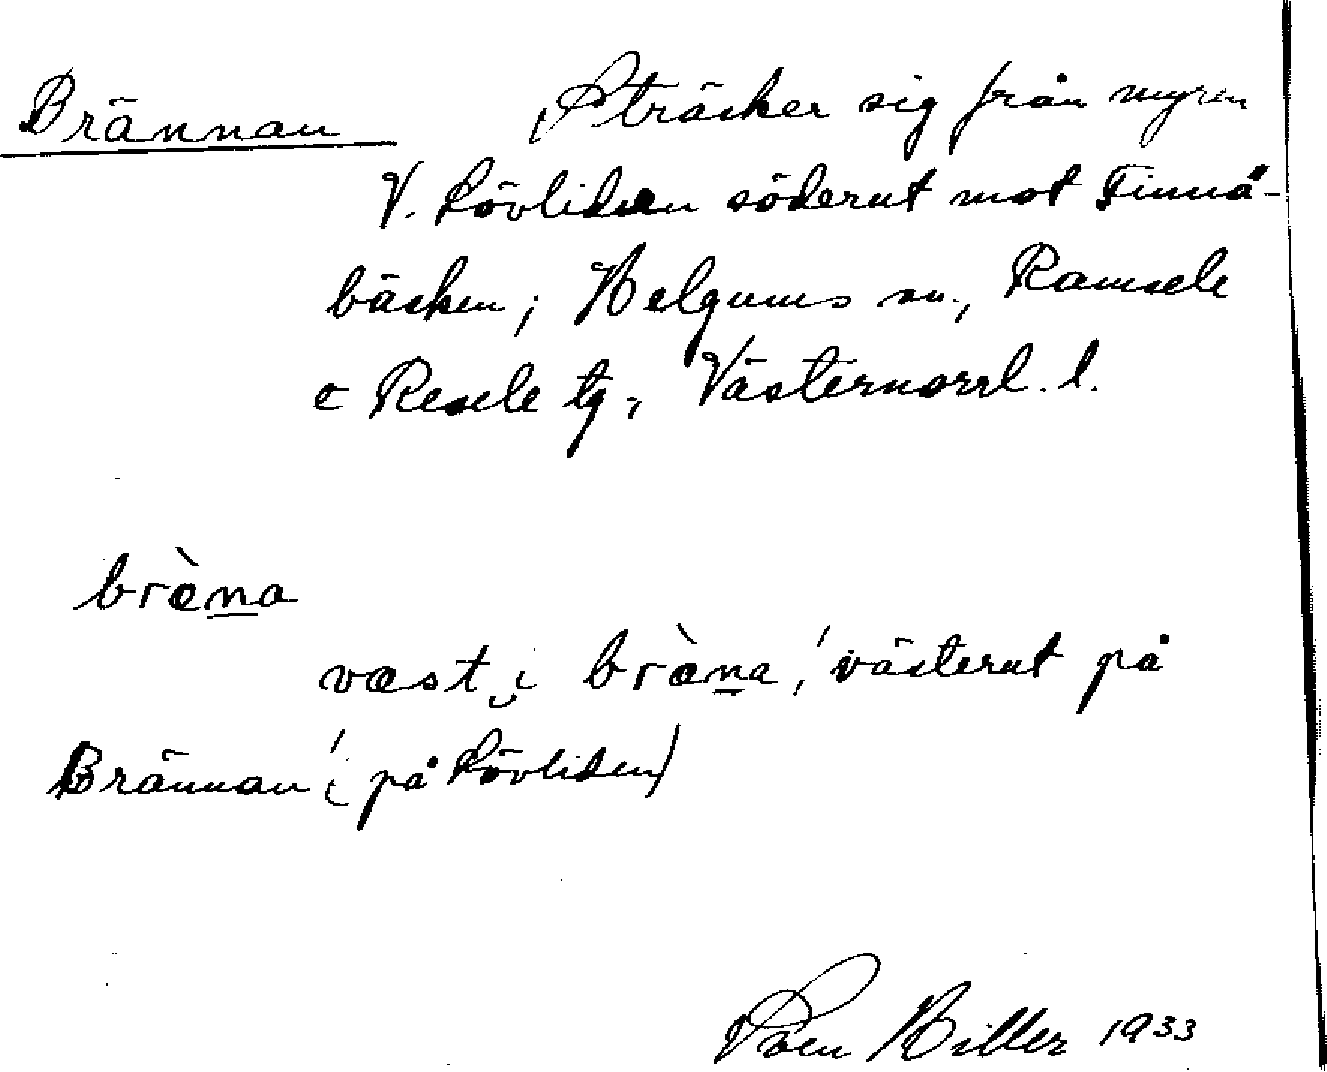 Brännan Sträcker sig från myren
V. Lövliden söderut mot Finnå-
bäcken; Helgums sn., Ramsele
o Resele tg., Västernorrl. l.
bræ̀na
væst i bræ̀na, 'västerut på
Brännan' (på Lövliden)
Sven Hiller 1933